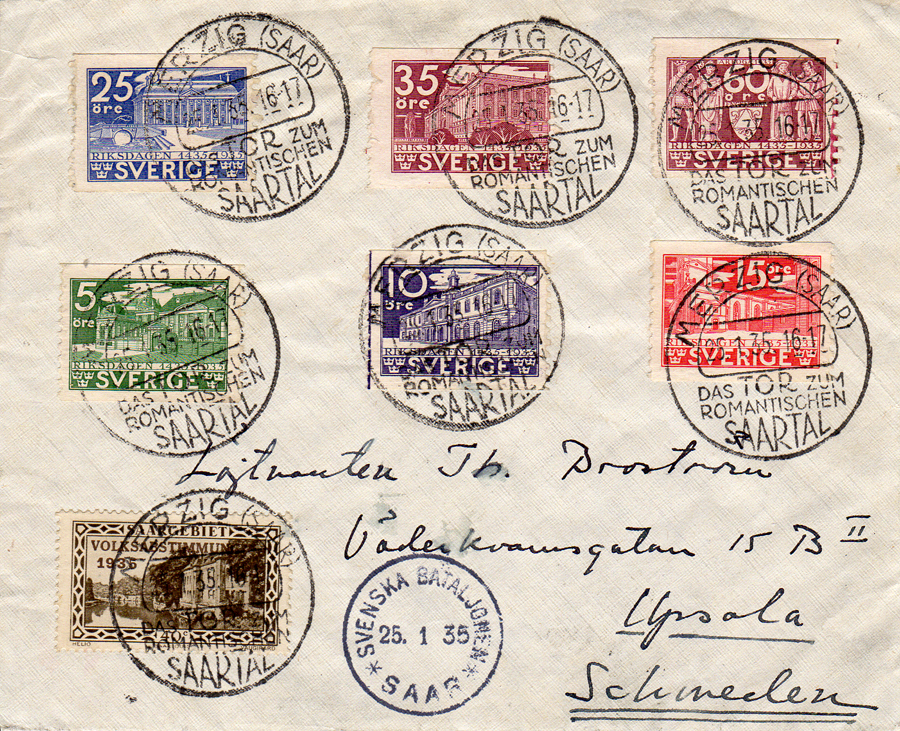 25 öre
RIKSDAGEN 1435-1935
SVERIGE
MERZIG (SAAR)
25.1.35.16-17
DAS TOR ZUM
ROMANTISCHEN
SAARTAL
35 öre
RIKSDAGEN 1435-1935
SVERIGE
MERZIG (SAAR)
25.1.35.16-17
DAS TOR ZUM
ROMANTISCHEN
SAARTAL
60 öre
RIKSDAGEN 1435-1935
SVERIGE
MERZIG (SAAR)
25.1.35.16-17
DAS TOR ZUM
ROMANTISCHEN
SAARTAL
5 öre
RIKSDAGEN 1435-1935
SVERIGE
MERZIG (SAAR)
25.1.35.16-17
DAS TOR ZUM
ROMANTISCHEN
SAARTAL
10 öre
RIKSDAGEN 1435-1935
SVERIGE
MERZIG (SAAR)
ROMANTISCHEN
SAARTAL
15 öre
SVERIGE
MERZIG (SAAR)
25.1.35.16-17
DAS TOR ZUM
ROMANTISCHEN
SAARTAL
Löjtnanten Th. Broström
Väderkvarnsgatan 15 B II
Upsala
Schweden
SAARGEBIET
VOLKSABSTIMMUNG
1935
HELIO VAUGIRARD
MERZIG (SAAR)
35
DAS TOR ZUM
ROMANTISCHEN
SAARTAL
SVENSKA BATALJONEN
25. 1 35
SAAR